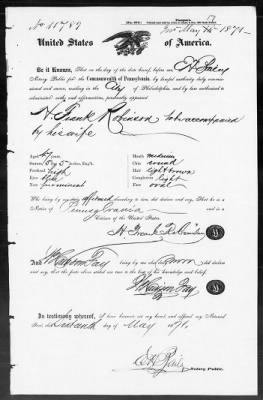 No 11789
May 1871
United States of America.
Be it Known, That on the day of the date hereof, before me,
Notary Public for the Commonwealth of Pennsylvania, by lawful authority duly commissioned
and sworn, residing in the City of Philadelphia, and by law authorized to
administer oaths and affirmations, personally appeared
H. Frank Robinson to be accompanied
by his wife
Age
Stature 5 ft 5 inches, Eng.
Forehead high
Eyes
Nose prominent
Mouth medium
Chin round
Hair light brown
Complexion light
Face oval
Who being by me duly affirmed according to law, did depose and say, that he is a
Native of Pennsylvania
Citizen of the United States.
H. Frank Robinson
And
being by me also sworn did declare
and say, that the facts above stated are true to the best of his knowledge and belief.
In testimony whereof, I have hereunto set my hand, and affixed my Notarial
Seal, this Sixteenth day of May 1871.
Notary Public.